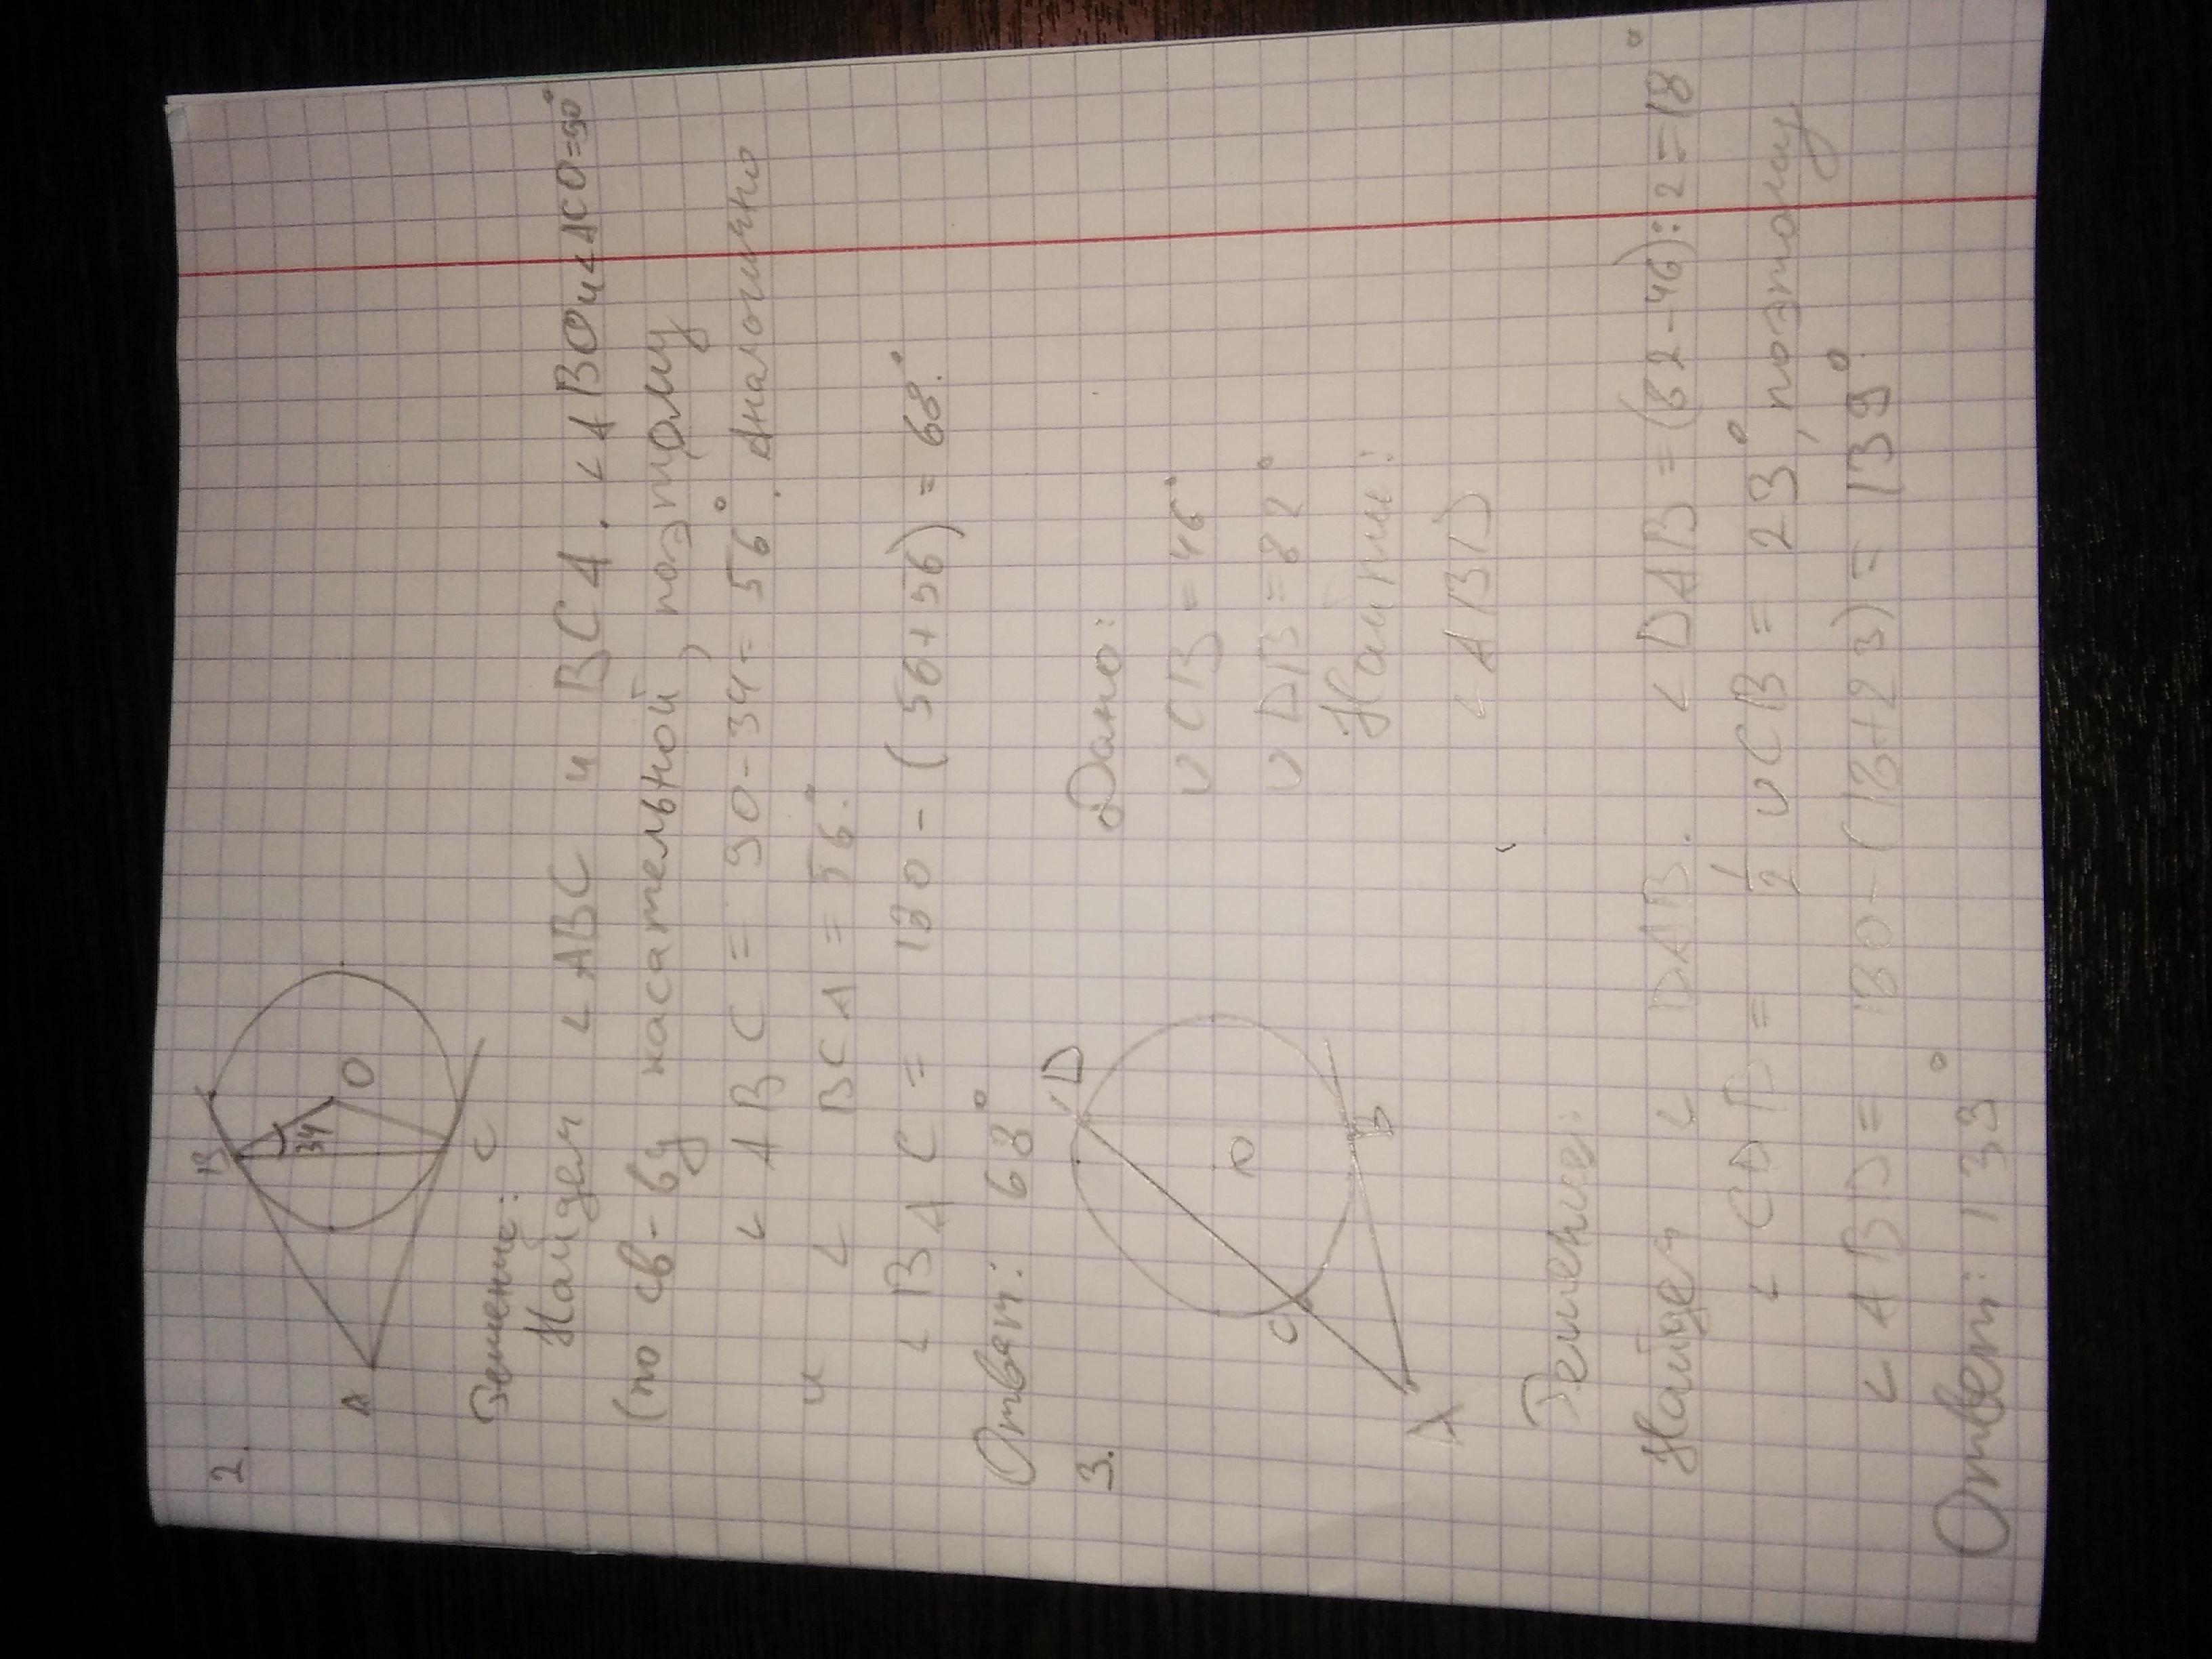 2.
A
B
34
O
C
Решение:
Найдем ∠ABC и BCA. ∠ABO и ∠ACO=90°
(по св-ву касательной), поэтому
∠ABC = 90-34= 56°. Аналогично
и ∠BCA = 56°.
∠BAC = 180-(56+56) = 68°.
Ответ: 68°
3.
D
O
C
B
A
Дано:
∪CB = 46°
∪DB = 82°
Найти:
∠ABD
Решение:
Найдем ∠DAB. ∠DAB = (82-46):2=18°
∠CDB = 1/2 ∪CB = 23°, поэтому
∠ABD = 180-(18+23) = 139°.
Ответ: 139°